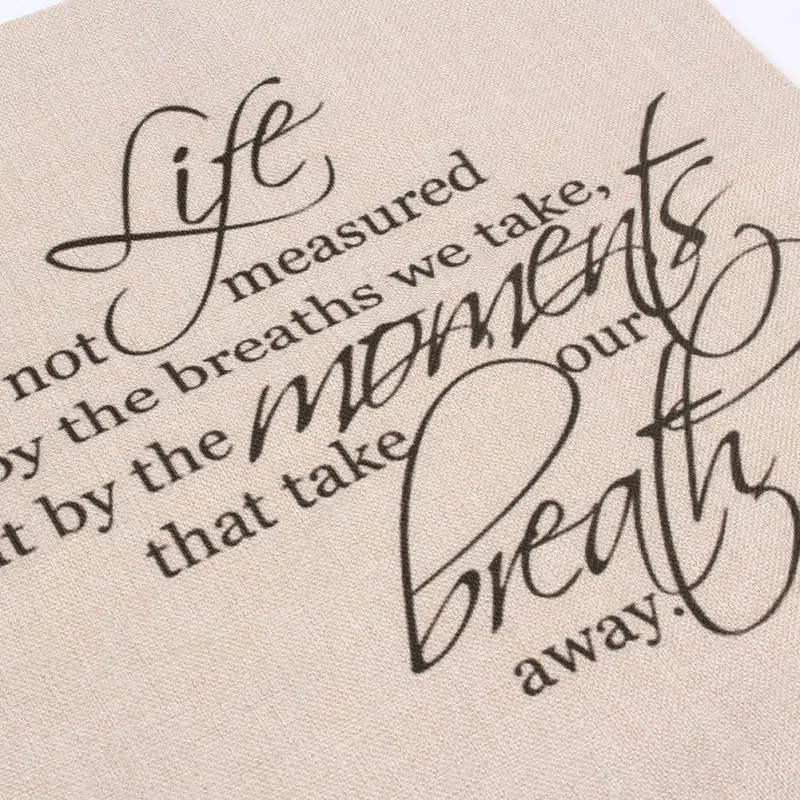 Life
not measured
by the breaths we take,
t by the moments
that take our
breath
away.